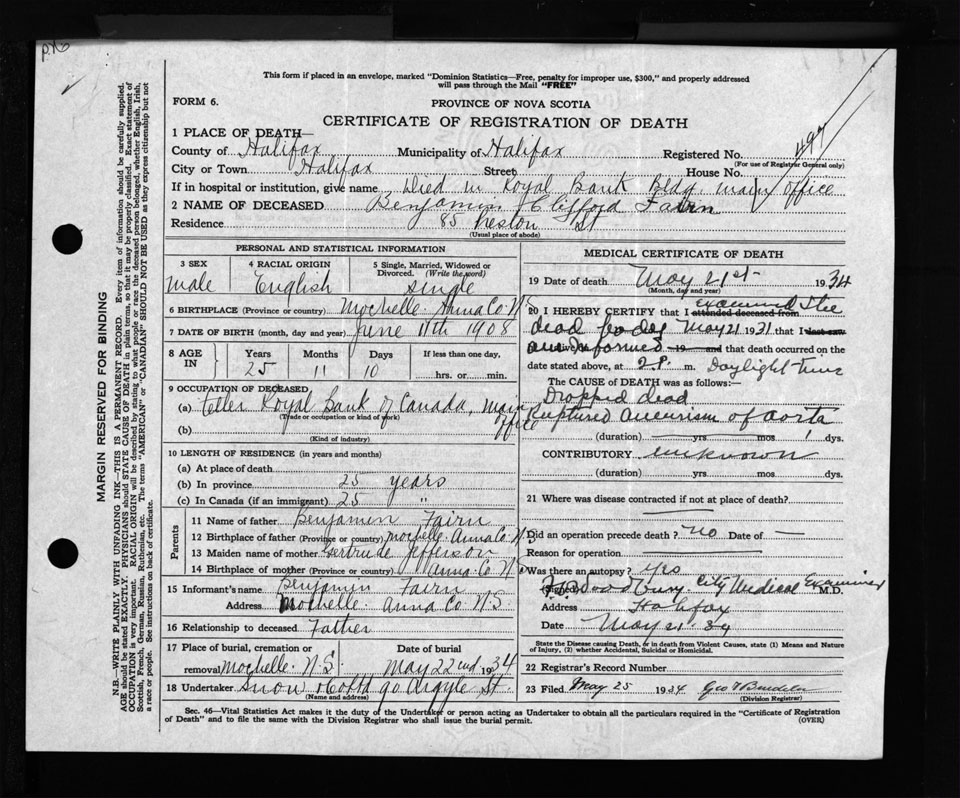 p.26
This form if placed in an envelope, marked "Dominion Statistics—Free, penalty for improper use, $300," and properly addressed
will pass through the Mail "FREE"
FORM 6.
PROVINCE OF NOVA SCOTIA
CERTIFICATE OF REGISTRATION OF DEATH
497
1 PLACE OF DEATH—
County of Halifax Municipality of Halifax Registered No.
(For use of Registrar General only)
City or Town Halifax Street House No.
If in hospital or institution, give name Died in Royal Bank Bldg. main office
2 NAME OF DECEASED Benjamin Clifford Fairn
Residence 85 St
(Usual place of abode)
PERSONAL AND STATISTICAL INFORMATION
3 SEX
male
4 RACIAL ORIGIN
English
5 Single, Married, Widowed or
Divorced. (Write the word)
single
6 BIRTHPLACE (Province or country) Mochelle Anna Co. N S
7 DATE OF BIRTH (month, day and year) June 11th 1908
8 AGE IN
Years Months Days If less than one day,
25 11 10 hrs. or min.
9 OCCUPATION OF DECEASED
(a) Teller Royal Bank of Canada, main office
(Trade or occupation or kind of work)
(b)
(Kind of industry)
10 LENGTH OF RESIDENCE (in years and months)
(a) At place of death
(b) In province 25 years
(c) In Canada (if an immigrant) 25 "
Parents
11 Name of father Benjamin Fairn
12 Birthplace of father (Province or country) Mochelle Anna Co. N S
13 Maiden name of mother Gertrude Jefferson
14 Birthplace of mother (Province or country) Anna. Co. N S
15 Informant's name Benjamin Fairn
Address Mochelle. Anna Co. N.S.
16 Relationship to deceased Father
17 Place of burial, cremation or Date of burial
removal Mochelle. N.S. May 22nd 1934
18 Undertaker Snow & Co Ltd 90 Argyle St.
(Name and address)
MEDICAL CERTIFICATE OF DEATH
19 Date of death May 21st 1934
(Month, day and year)
20 I HEREBY CERTIFY that I attended deceased from examined the
dead body May 21 1931 that I last saw
alive on am informed 19 and that death occurred on the
date stated above, at 2 P. m. Daylight time
The CAUSE of DEATH was as follows:—
Dropped dead
Ruptured aneurism of aorta
(duration) yrs mos dys.
CONTRIBUTORY unknown
(duration) yrs. mos. dys.
21 Where was disease contracted if not at place of death?
Did an operation precede death? no Date of —
Reason for operation
Was there an autopsy? yes
(Signed) City Medical Examiner M.D.
Address Halifax
Date May 21. 34
State the Disease causing Death, or in death from Violent Causes, state (1) Means and Nature
of Injury, (2) whether Accidental, Suicidal or Homicidal.
22 Registrar's Record Number
23 Filed May 25 1934 Geo
(Division Registrar)
Sec. 46—Vital Statistics Act makes it the duty of the Undertaker or person acting as Undertaker to obtain all the particulars required in the "Certificate of Registration
of Death" and to file the same with the Division Registrar who shall issue the burial permit. (OVER)
MARGIN RESERVED FOR BINDING
N.B.—WRITE PLAINLY WITH UNFADING INK—THIS IS A PERMANENT RECORD. Every item of information should be carefully supplied.
AGE should be stated EXACTLY. PHYSICIANS should STATE CAUSE OF DEATH in plain terms, so that it may be properly classified. Exact statement of
OCCUPATION is very important. RACIAL ORIGIN will be described by stating to what people or race the deceased person belonged, whether English, Irish,
Scottish, French, German, Russian, Ruthenian, etc. The terms "AMERICAN" or "CANADIAN" SHOULD NOT BE USED as they express citizenship but not
a race or people. See instructions on back of certificate.